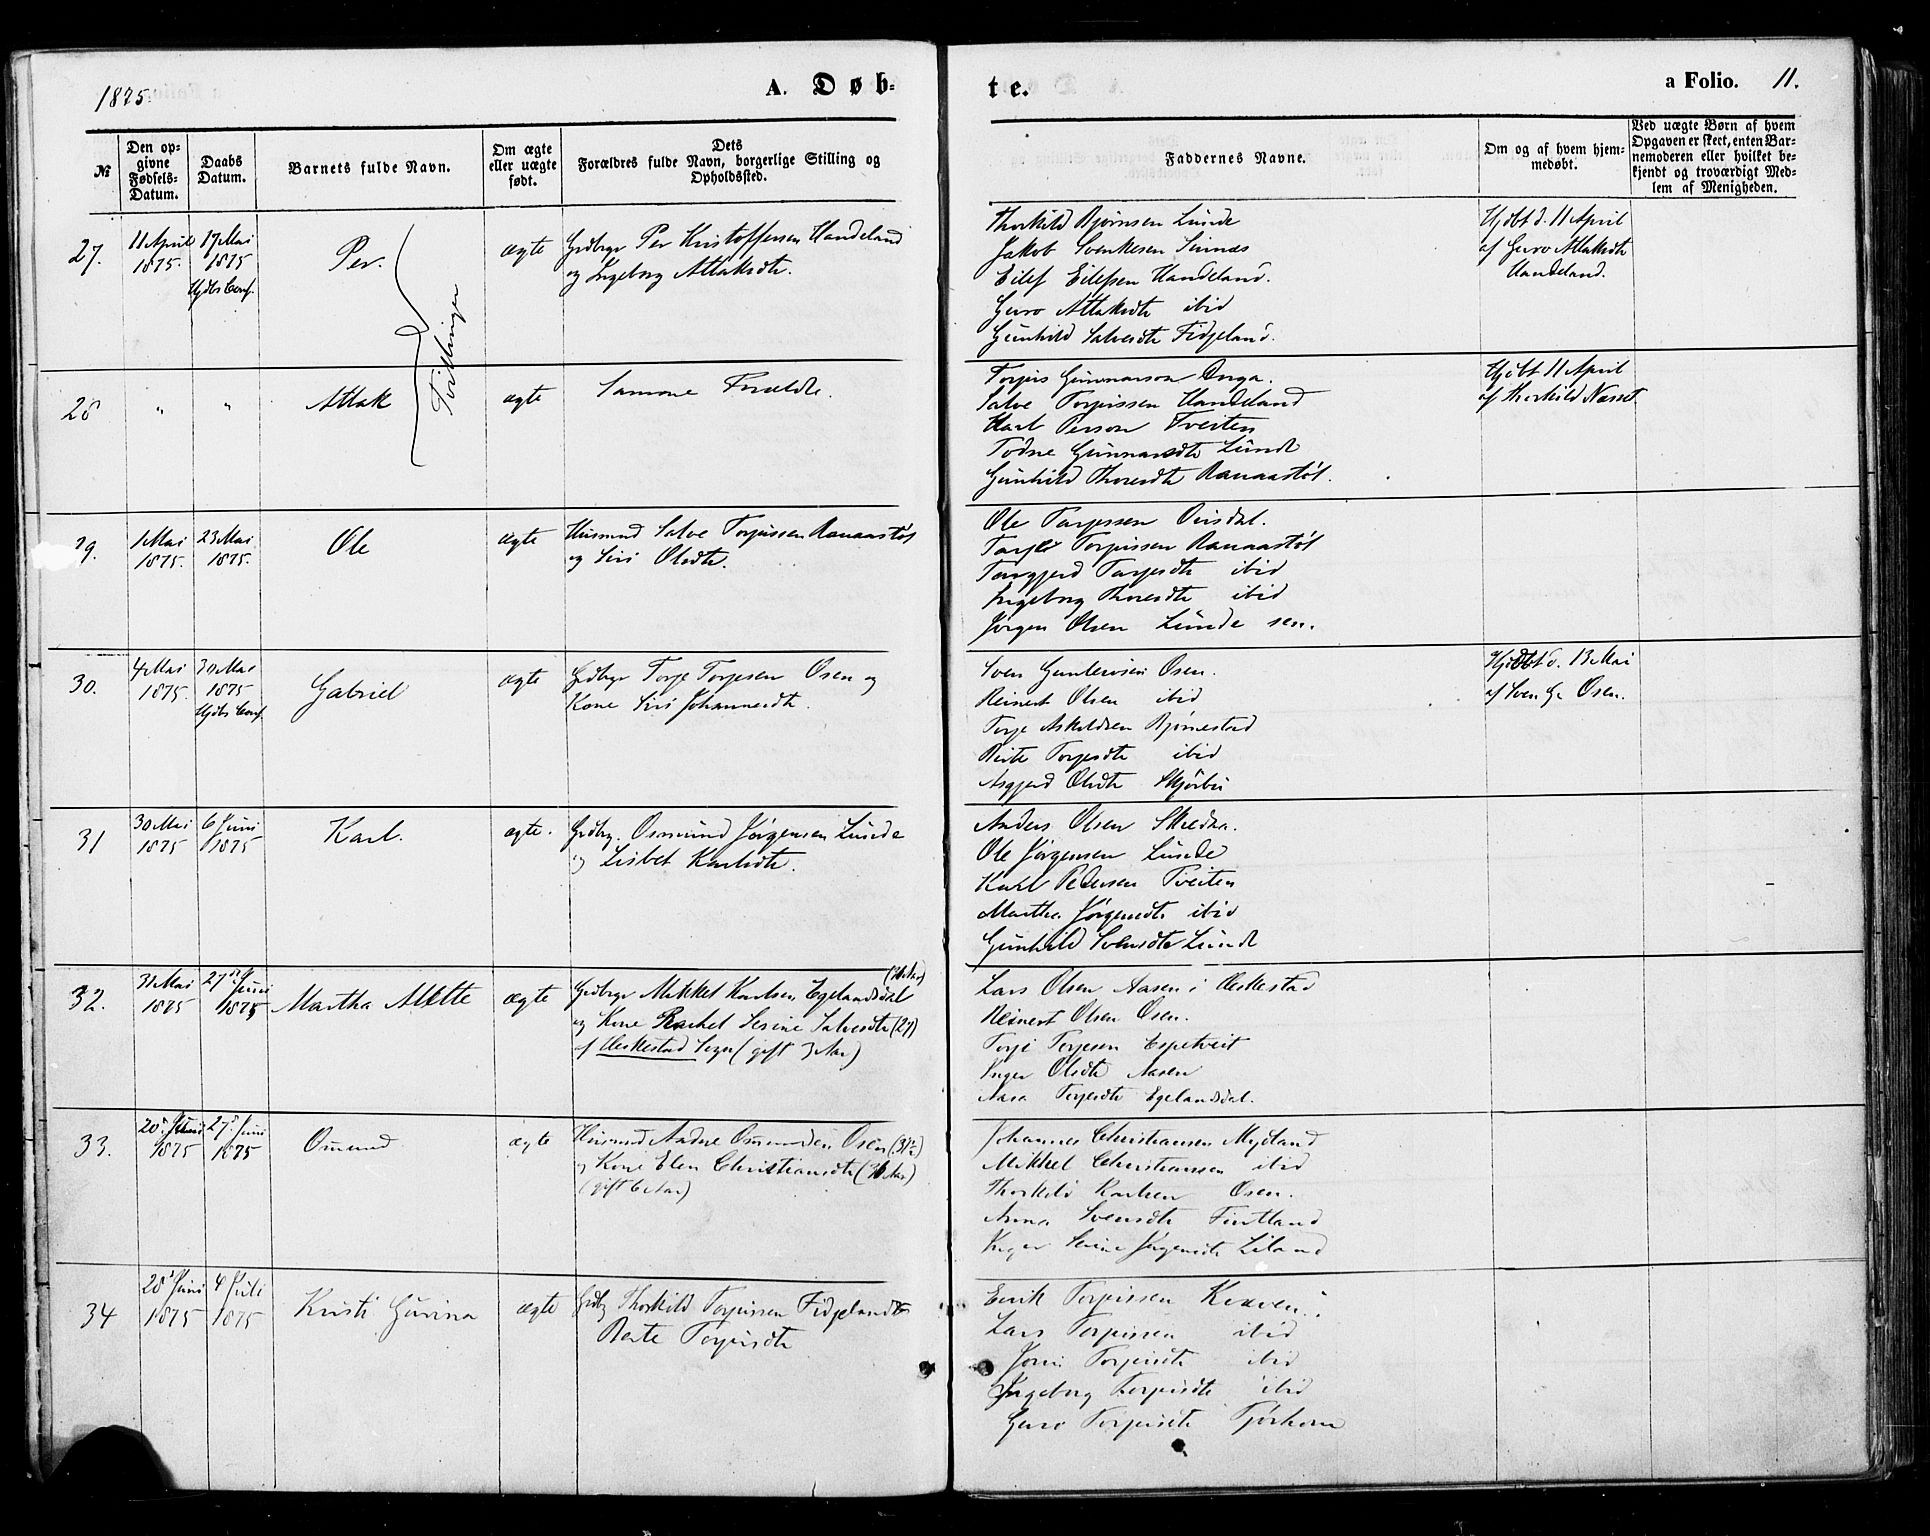 1875
A. Døb-
te.
a Folio. 11.
№
Den op-
givne
Fødsels-
Datum.
Daabs
Datum.
Barnets fulde Navn.
Om ægte
eller uægte
født.
Dets
Forældres fulde Navn, borgerlige Stilling og
Opholdssted.
Faddernes Navne.
Om og af hvem hjem-
medøbt.
Ved uægte Børn af hvem
Opgaven er skeet, enten Bar-
nemoderen eller hvilket be-
kjendt og troværdigt Med-
lem af Menigheden.
27.
11 April
1875.
17 Mai
1875
Hjdbs Conf.
Per.
Tvillinger
ægte
Grdbgr Per Kristoffersen Handeland
og Ingeborg Atlaksdtr.
Thorkild Bjørnsen Lunde
Jakob Svenkesen Sinnes
Eilef Eilefsen Handeland.
Guro Atlaksdtr ibid
Gunhild Salvesdtr Fidjeland.
Hjdbt d. 11 April
af Guro Atlaksdtr
Handeland.
28
" "
Atlak
ægte
Samme Foræeldre.
Torjus Gunnarson
Salve Torjussen Handeland
Karl Person Tveiten
Todne Gunnarsdtr Lunde
Gunhild Thoresdtr Ranaastøl.
Hjdbt 11 April
af Thorkild Næset.
29.
1 Mai
1875.
23 Mai
1875.
Ole
ægte
Husmnd Salve Torjussen Ranaastøl
og Siri Olsdtr.
Ole Tarjessen Ousdal.
Tarjei Torjussen Ranaastøl
Torgjerd Tarjesdtr ibid
Ingeborg Thoresdtr ibid
Jørgen Olsen Lunde sen.
30.
4 Mai
1875.
30 Mai
1875
Hjdbs Conf.
Gabriel
ægte
Grdbgr Torje Torjesen Osen og
Kone Siri Johannesdtr.
Sven Gunleivsen Osen.
Reinert Olsen ibid
Torje Askildsen Bjørnestad
Berte Torjesdtr ibid
Asgjerd Olsdtr Skjørbu
Hjdbt d. 13 Mai
af Sven G. Osen.
31
30 Mai
1875
6 Juni
1875
Karl.
ægte.
Grdbg. Osmund Jørgensen Lunde
og Lisbet Karlsdtr.
Anders Olsen Skredaa.
Ole Jørgensen Lunde
Karl Pedersen Tveiten
Martha Jørgensdtr ibid
Gunhild Svensdtr Lunde
32.
31 Mai
1875
27de Juni
1875
Martha Mette
ægte
Grdbgr Mikkel Karlsen Egelandsdal
og Kone Rachel Serine Salvesdtr (27)
af Øiestad Sogn (gift 3 Aar)
Lars Olsen Aasen i Øiestad
Reinert Olsen Osen.
Torje Torjesen Espetveit
Inger Olsdtr Aasen
Aasa Torjesdtr Egelandsdal.
33.
20de Juni
1875
27de Juni
1875
Osmund
ægte
Husmnd Andre Osmundsen Osen (31½)
og Kone Elen Christiansdtr (36 Aar)
(gift 6 Aar)
Johannes Christiansen Mydland
Mikkel Christiansen ibid
Thorkild Karlsen Osen.
Anna Svensdtr Fintland
Inger Serine Jørgensdtr Liland
34
20de Juni
1875
4 Juli
1875
Kristi Gurina
ægte
Grdbg Thorkild Torjussen Fidjeland &
Berte Torjusdtr
Eerik Torjussen Kvæven.
Lars Torjussen ibid
Joren Torjusdtr ibid
Ingeborg Torjusdtr ibid
Guro Torjusdtr Tjørhom